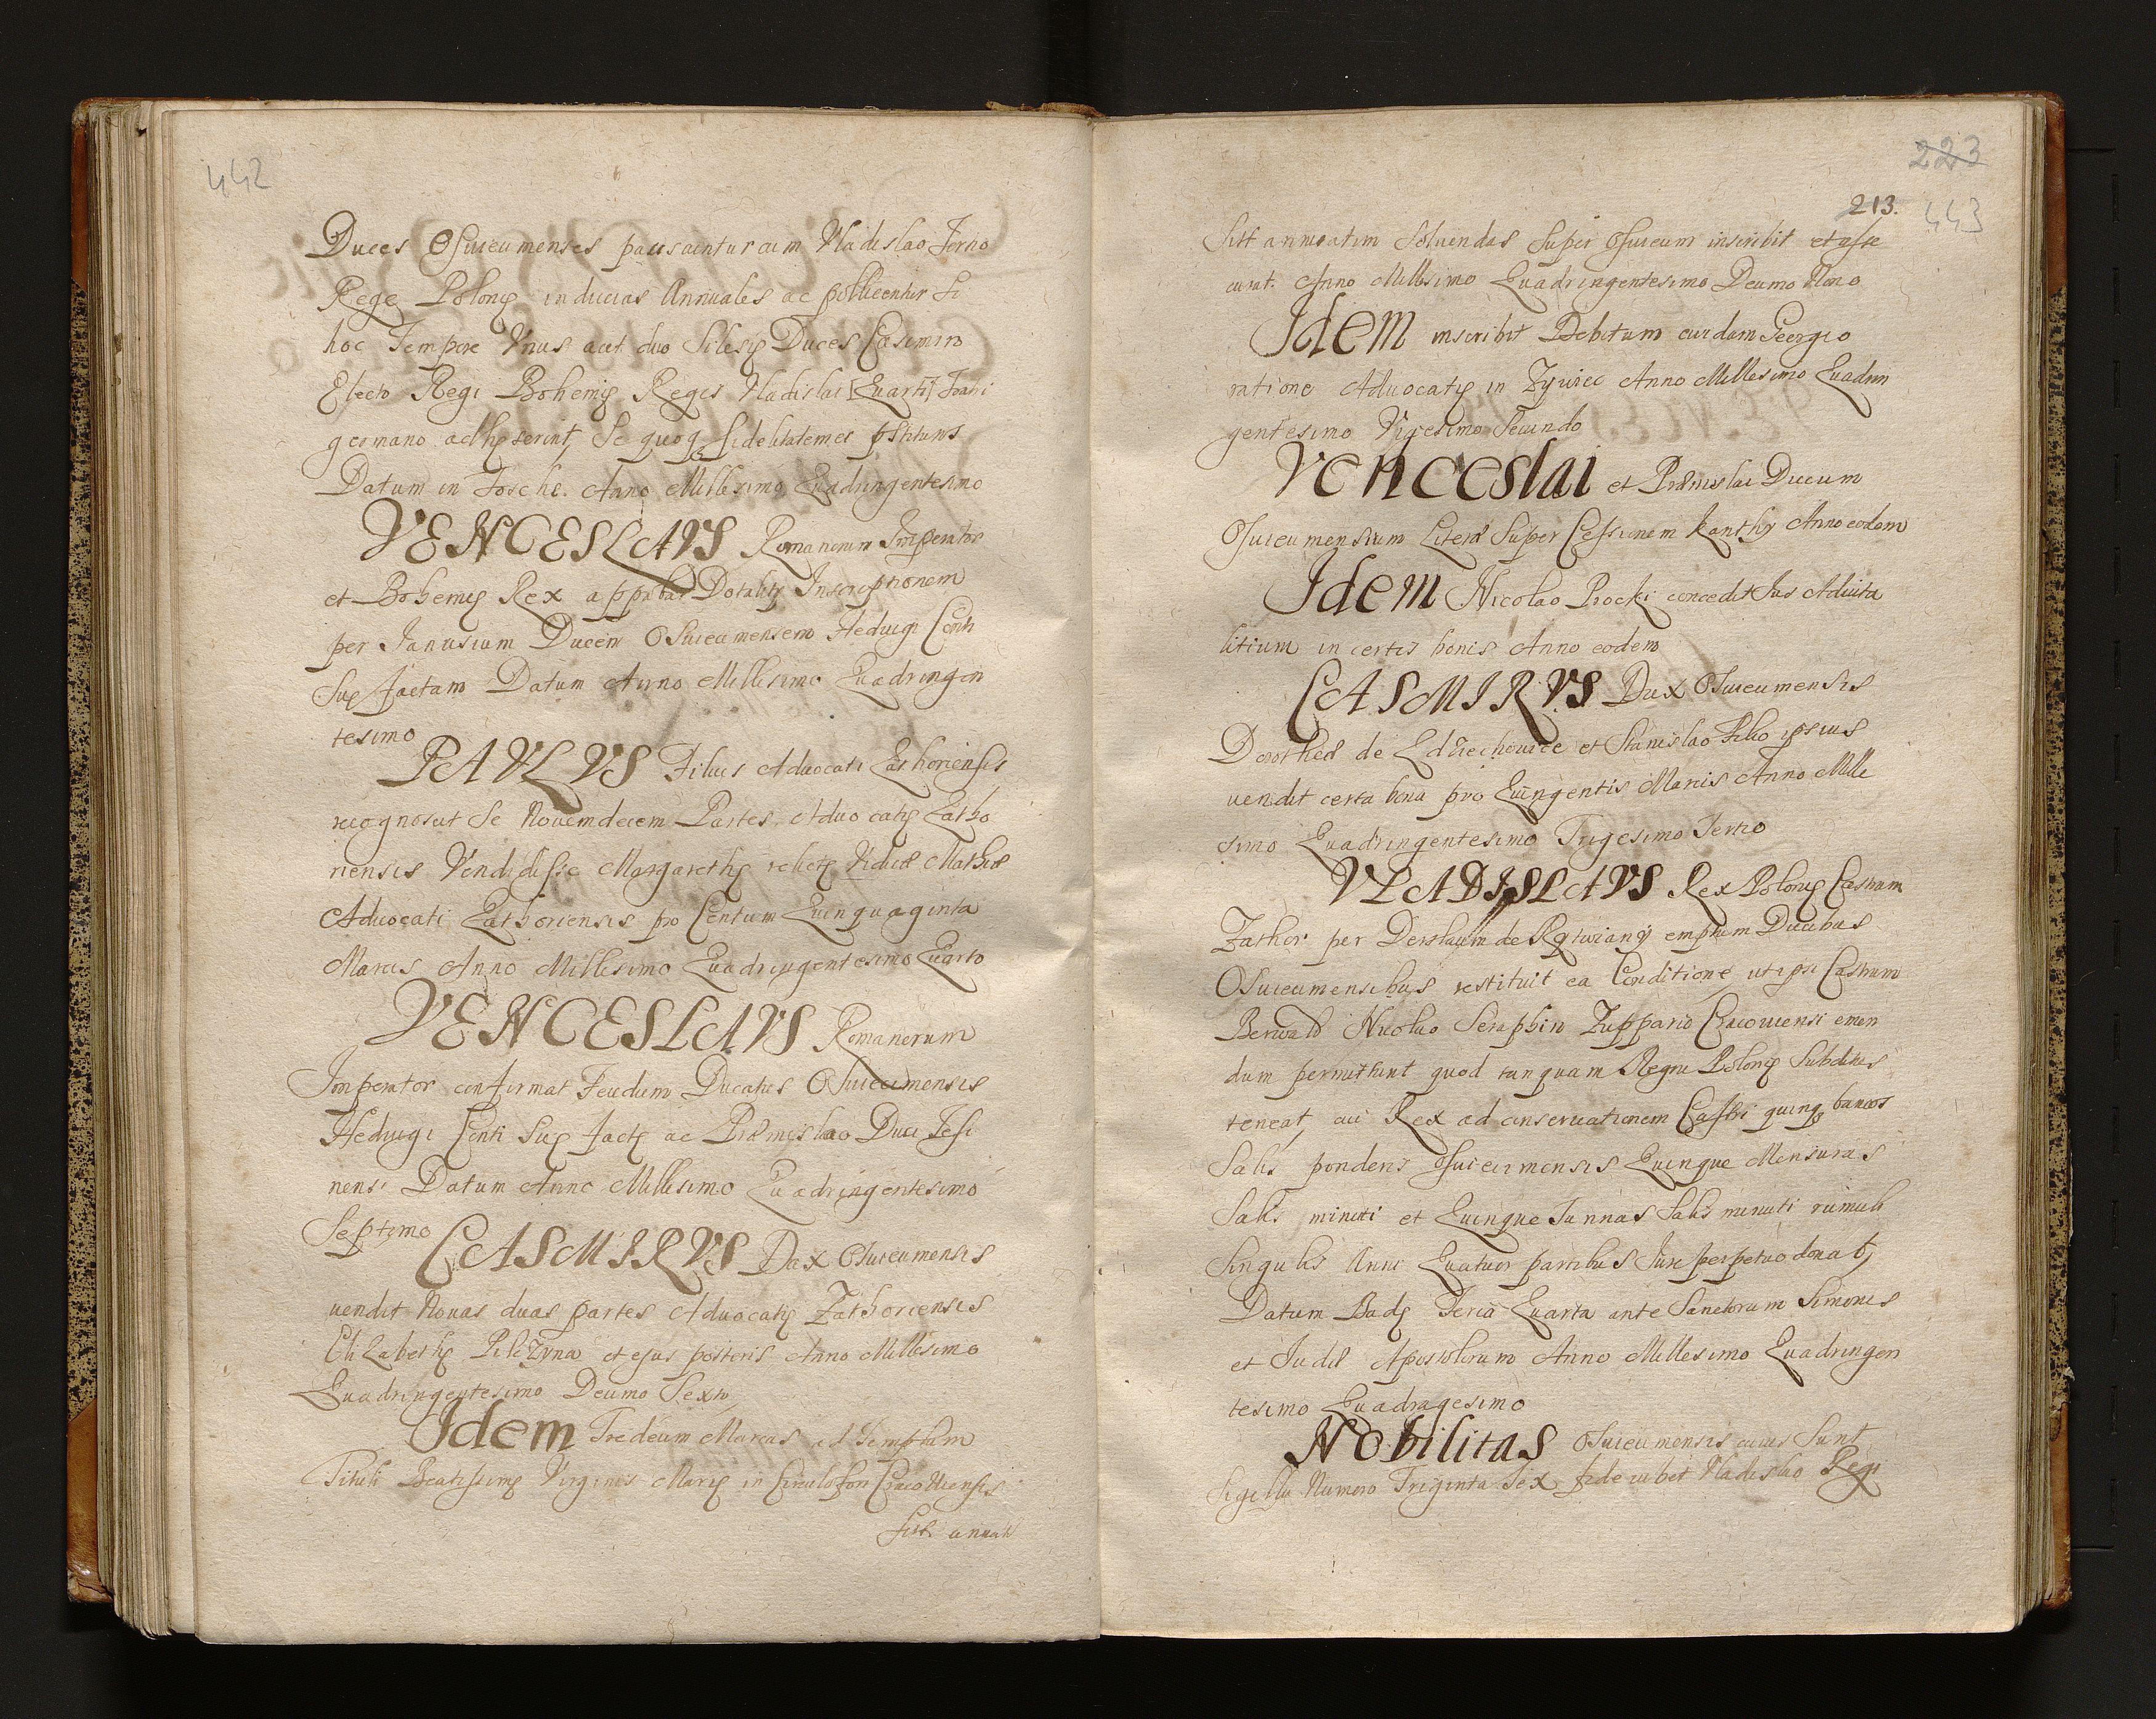 442
Duces Osuiecimenses paciscuntur cum Vladislao Tertio
Rege Polonię inducias Annuales ac pollicentur Si
hoc Tempore Vnus aut duo Silesię Duces Casimiro
Electo Regi Bohemię Regis Vladislai [Quarti]
germano adhęserint, Se quoq fidelitatem ei
Datum in Tosche. Anno Millesimo Quadringentesimo
VENCESLAVS Romanorum Imperator
et Bohemię Rex approbat Dotalitij Inscriptionem
per Janusium Ducem Osuiecimensem Heduigi Conti
Suę factam Datum Anno Millesimo Quadringen
tesimo
PAVLVS Filius Aduocati Zathoriensis
recognoscit Se Nouemdecem Partes Aduocatię Zatho
riensis Vendidisse Margarethę relictę Viduæ Mathiæ
Aduocati Zathoriensis pro Centum Quinquaginta
Marcis Anno Millesimo Quadringentesimo Quarto
VENCESLAVS Romanorum
Imperator confirmat Feudum Ducatus Osuiecimensis
Heduigi Conti Suę factę ac Præmislao Duci Tesi
nensi Datum Anno Millesimo Quadringentesimo
Septimo
CASMIRVS Dux Osuiecimensis
uendit Nouas duas partes Aduocatię Zathoriensis
Elizabethę et ejus posteris Anno Millesimo
Quadringentesimo Decimo Sexto
Idem Tredecim Marcas ad Templum
Tituli Beatissimę Virginis Marię in Circulo Cracouiensis
Sist annuat
223
213. 443
Sist annuatim Soluendas Super Osuiecim inscribit et asse
curat. Anno Millesimo Quadringentesimo Decimo Nono
Idem inscribit Debitum cuidam Georgio
ratione Aduocatię in Zywiec Anno Millesimo Quadrin
gentesimo Vigesimo Secundo
Venceslai et Præmislai Ducum
Osuiecimensium Literæ Super Cessionem Kanthy Anno eodem
Idem Nicolao Procki concedit Jus Aduita
litium in certis bonis Anno eodem
CASMIRVS Dux Osuiecimensis
Dorotheæ de et Stanislao Filio ipsius
uendit certa bona pro Quingentis Marcis Anno Mille
simo Quadringentesimo Trigesimo Tertio
VLADISLAVS Rex Polonię Castrum
Zathor per Derslaum de Rytwiany emptum Ducibus
Osuiecimensibus restituit ea Conditione, ut ipsi Castrum
Berwald Nicolao Seraphin Zuppario Cracouiensi emen
dum permittunt quod tanquam Regni Polonię Subditus
teneat, cui Rex ad conseruationem Castri quinq bancos
Salis ponderis Osuiecimensis Quinque Mensuras
Salis minuti et Quinque Tunnas Salis minuti
Singulis Anni Quatuor partibus Jure perpetuo donat,
Datum Budę Feria Quarta ante Sanctorum Simonis
et Judæ Apostolorum Anno Millesimo Quadringen
tesimo Quadragesimo
Nobilitas Osuiecimensis cuius Sunt
Sigilla Numero Triginta Sex fide iubet Vladislao Regi